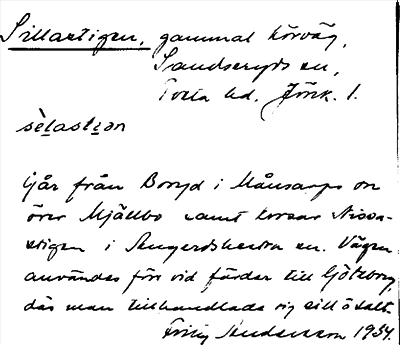 Sillastigen, gammal körväg,
Sandseryds sn,
Tveta hd. Jönk. l.
sèlastiən
Går från Boryd i Månsarps sn
över Mjällbo samt korsar Nissa-
stigen i Angerdshestra sn. Vägen
användes för vid färder till Göteborg,
där man tillhandlade sig sill å salt.
Fritz Andersson 1934.